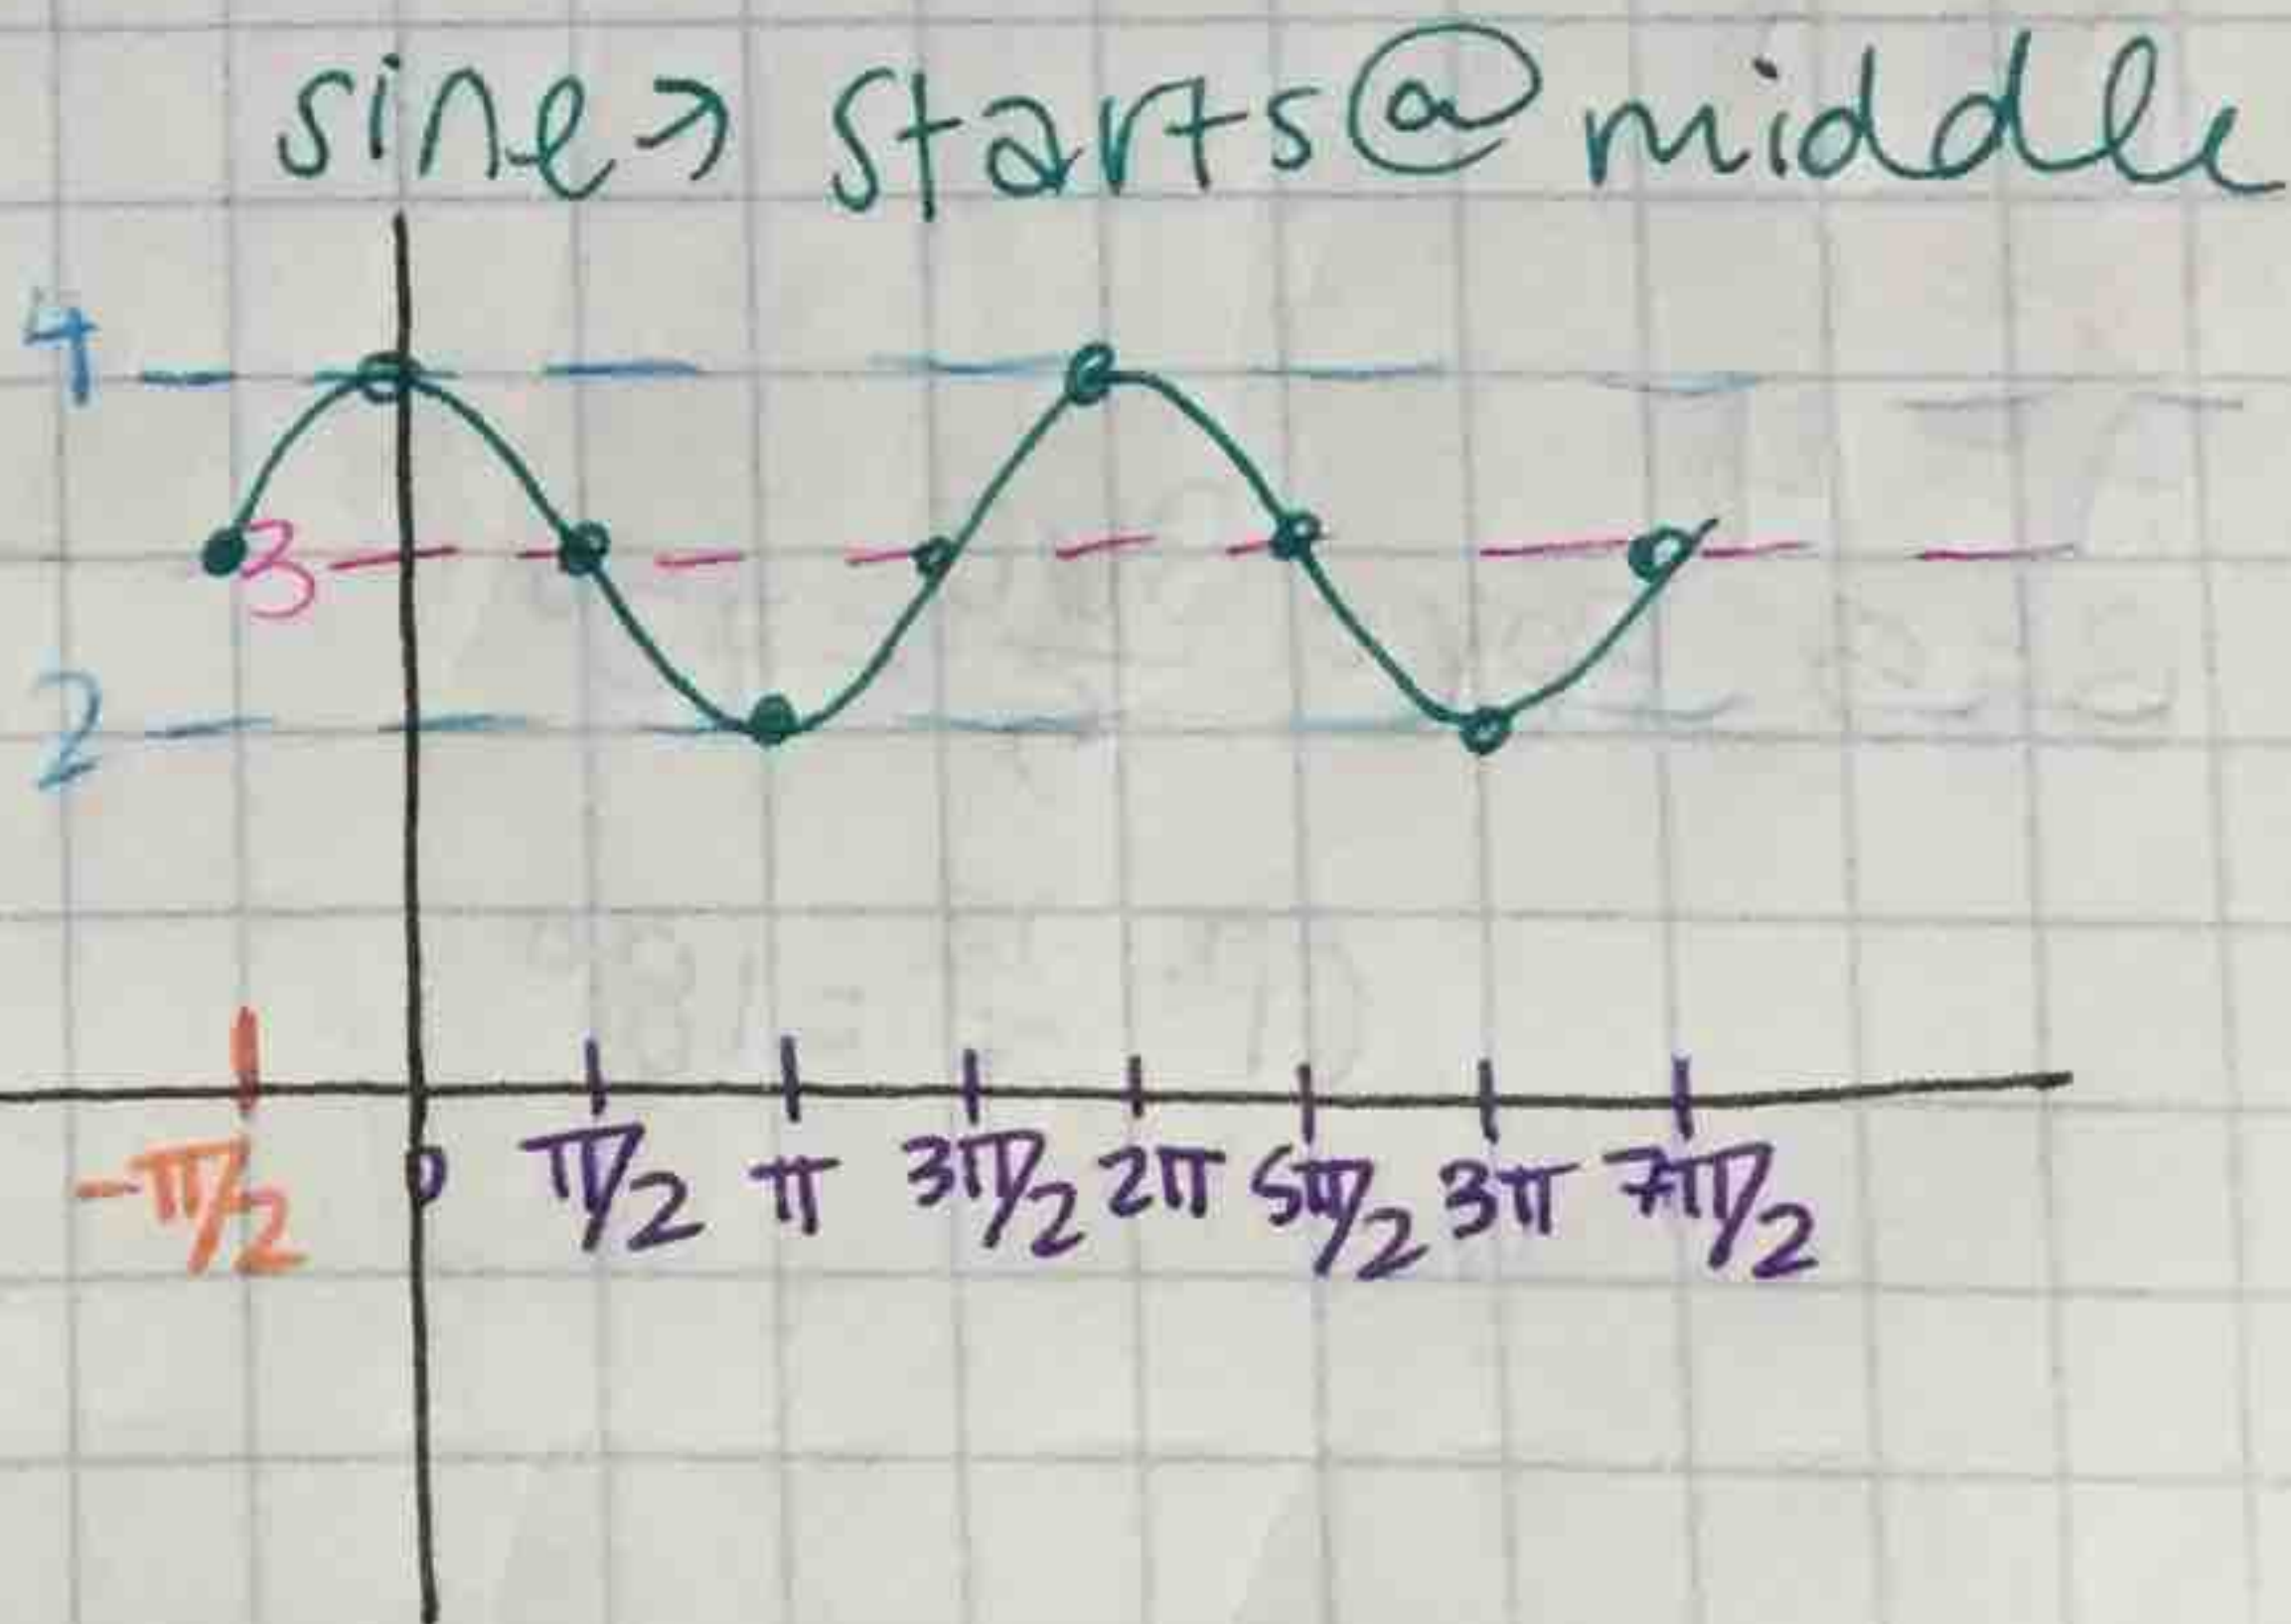 sine → starts @ middle
4
3
2
-π/2 0 π/2 π 3π/2 2π 5π/2 3π 7π/2